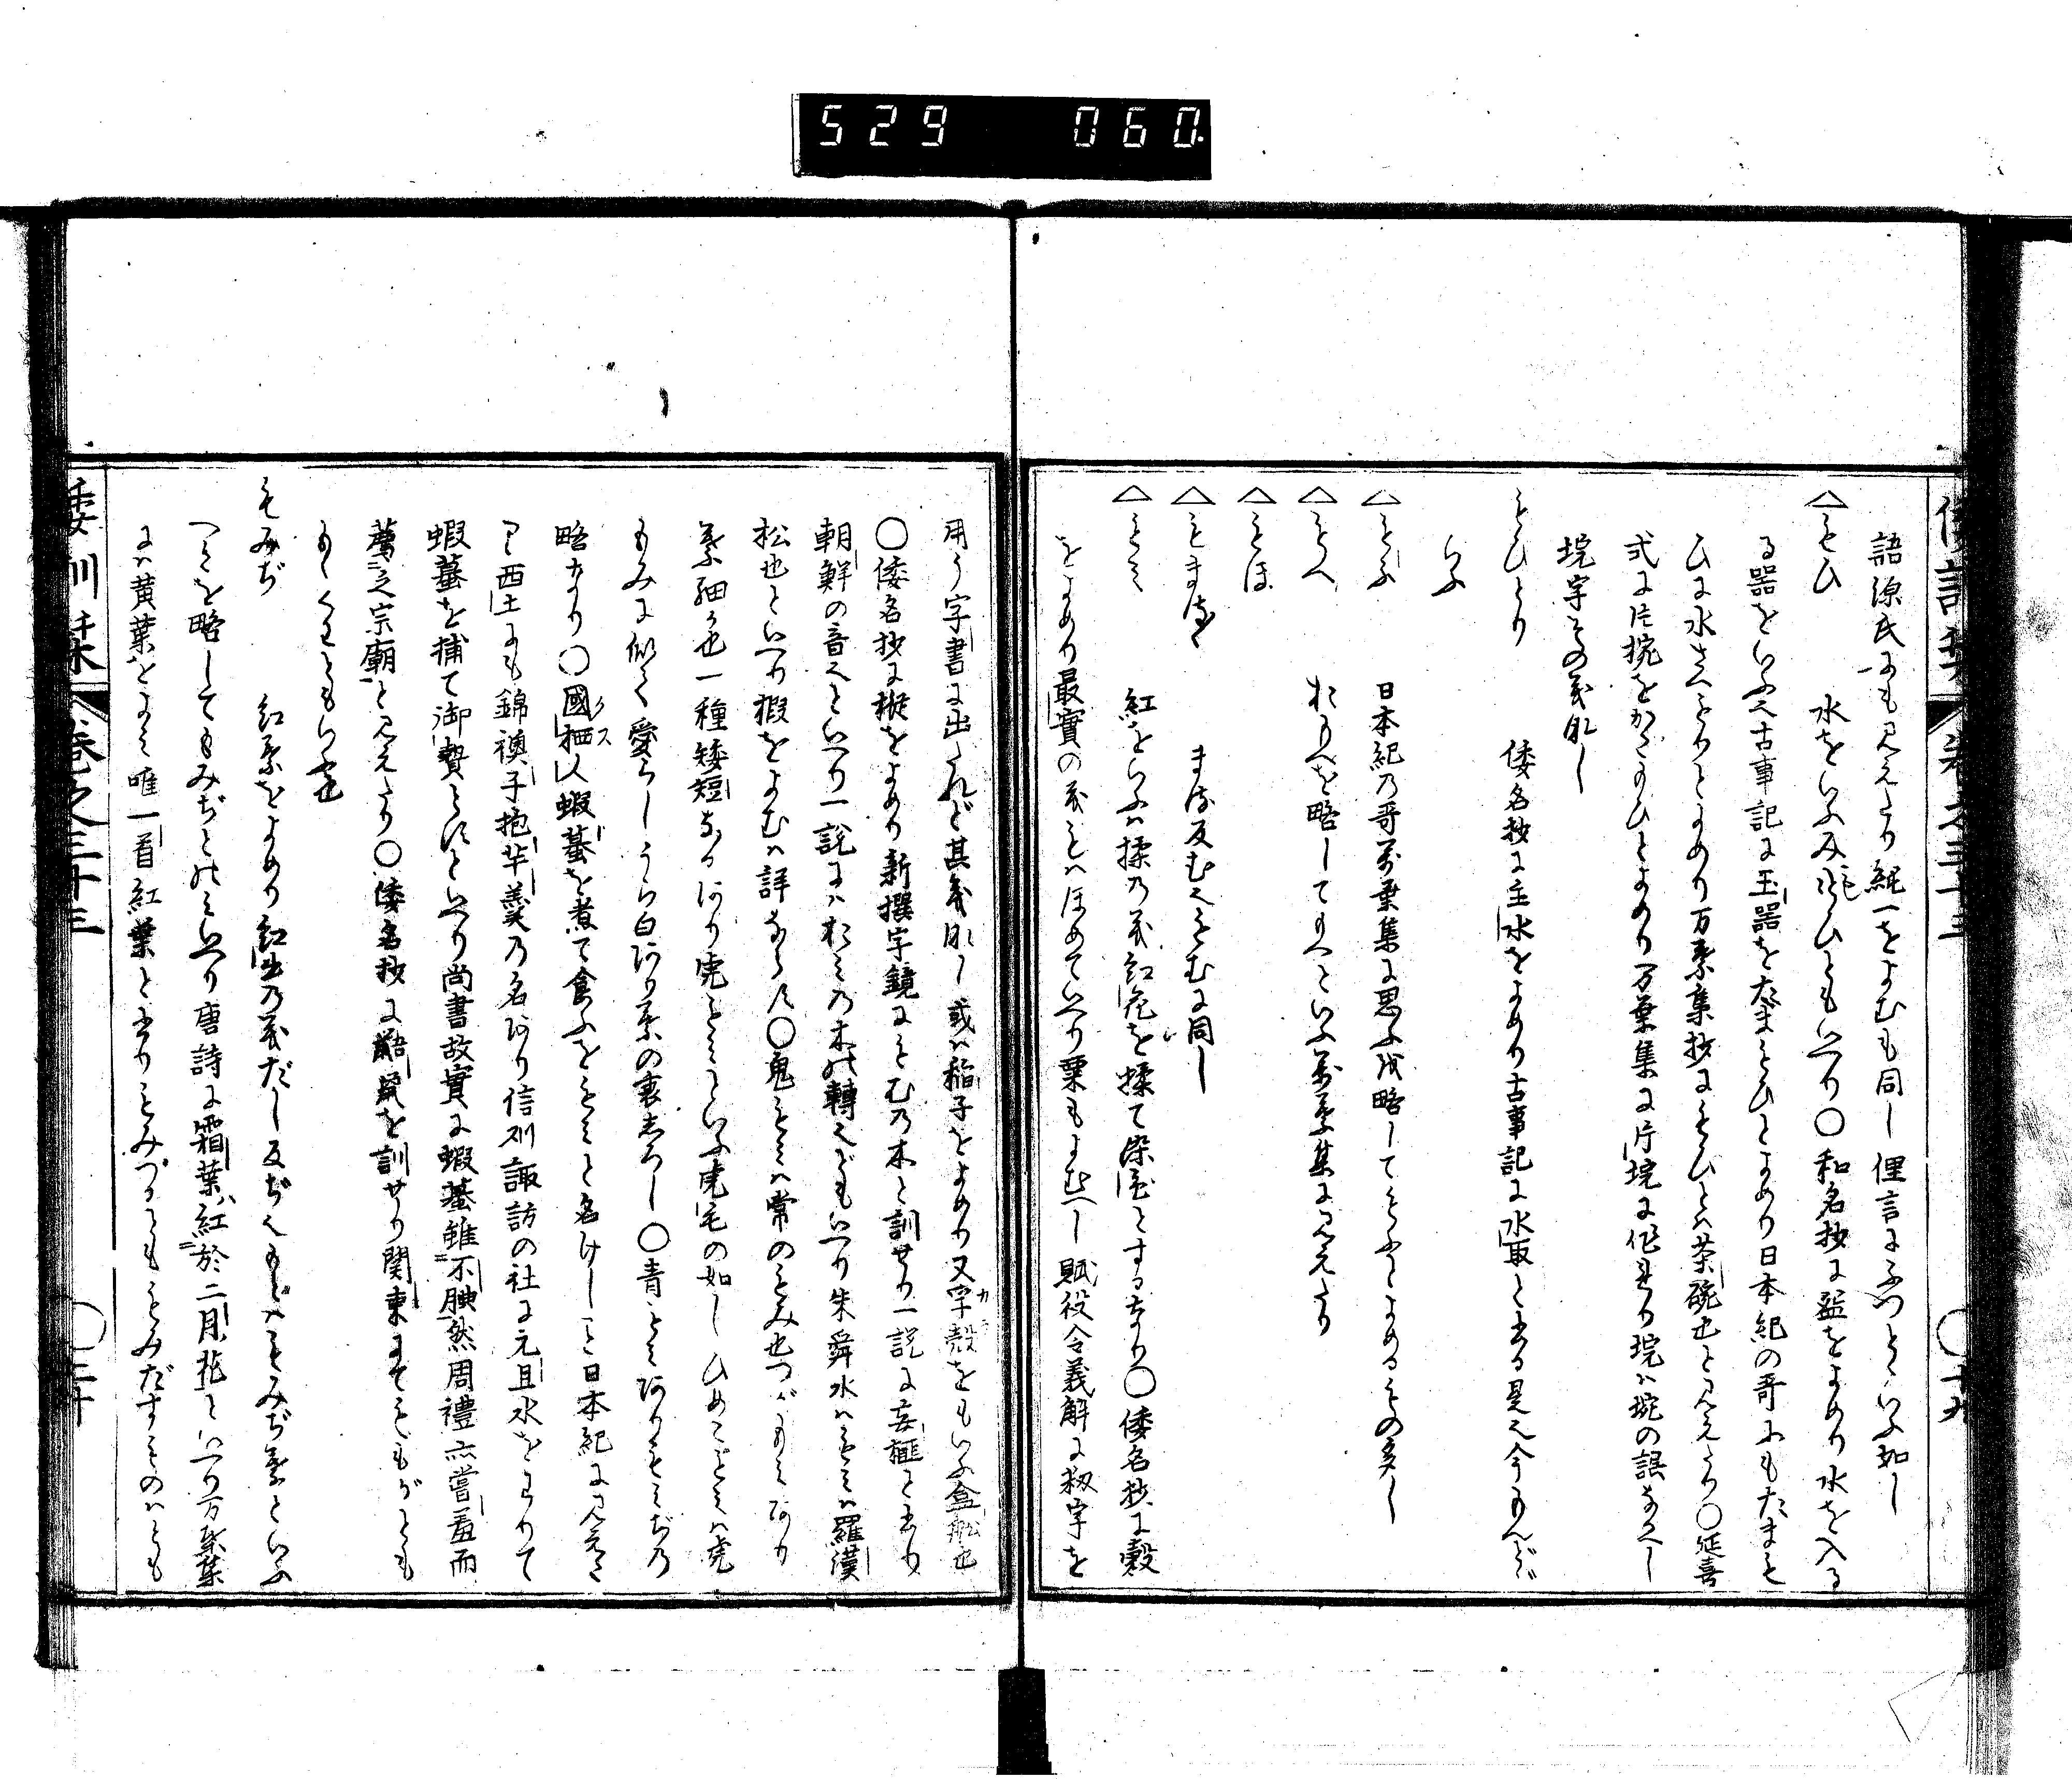 529 060
倭訓栞 卷之三十三 ○十九
語源氏にも見えたり純一をよむも同し俚言にふつとゝいふ如し
△もひ 水をいふみもひともいへり○和名抄に盌をよめり水を入る
る器をいふ古事記に玉器をたまもひとよめり日本紀の哥にもたまも
ひに水さへもりとよめり万葉集抄にもひとは茶碗也と見えたり○延喜
式に片椀をかたもひとよめり万葉集に片垸に作れり垸は埦の誤なるへし
垸字その義なし
もひとり 倭名抄に主水をよめり古事記に水取と書る是也今もんど
いふ
△もふ 日本紀乃哥萬葉集に思ふ成略してもふとよめるもの多し
△もへ おもへを略してもへといふ萬葉集に見えたり
△もほ
△もまる まる反む也もむに同し
△もみ 紅をいふは揉乃義紅花を揉て染色とするなり○倭名抄に穀
をよめり最實の義もはほめていへり粟もよむへし賦役令義解に籾字を
用う字書に出されど其義なし或は稲子をよめり又孚殻をもいふ盒舩也
○倭名抄に樅をよめり新撰字鏡にもむ乃木と訓せり一説に妄榧と書り
朝鮮の音也といへり一説にはおみの木の轉也ともいへり朱舜水はもみは羅漢
松也といへり椵をよむは詳ならす○鬼もみは常のもみ也つがもみあり
葉細く也一種矮短なるあり虎もみといふ虎宅の如しひめこもみは虎
もみに似て愛らしうら白あり葉の裏しろし○青もみありもみぢの
略なり○國栖人蝦蟇を煮て食ふをもみと名けしこと日本紀に見えた
り西土にも錦襖子抱芋羹乃名あり信州諏訪の社に元旦水をわりて
蝦蟇を捕て御贄とすといへり尚書故實に蝦蟇雖不腆然周禮亦嘗羞而
薦之宗廟と見えたり○倭名抄に鼯鼠を訓せり関東にてもゝがとも
もゝくわともいふ也
もみぢ 紅葉をよめり紅出乃義だし反ぢ也もどはもみぢ葉といふ
へきを略してもみぢとのみいへり唐詩に霜葉紅於二月花といへり万葉集
には黄葉をよみ唯一首紅葉と書りもみづるとももみだすものはとも
倭訓栞 卷之三十三 ○二十